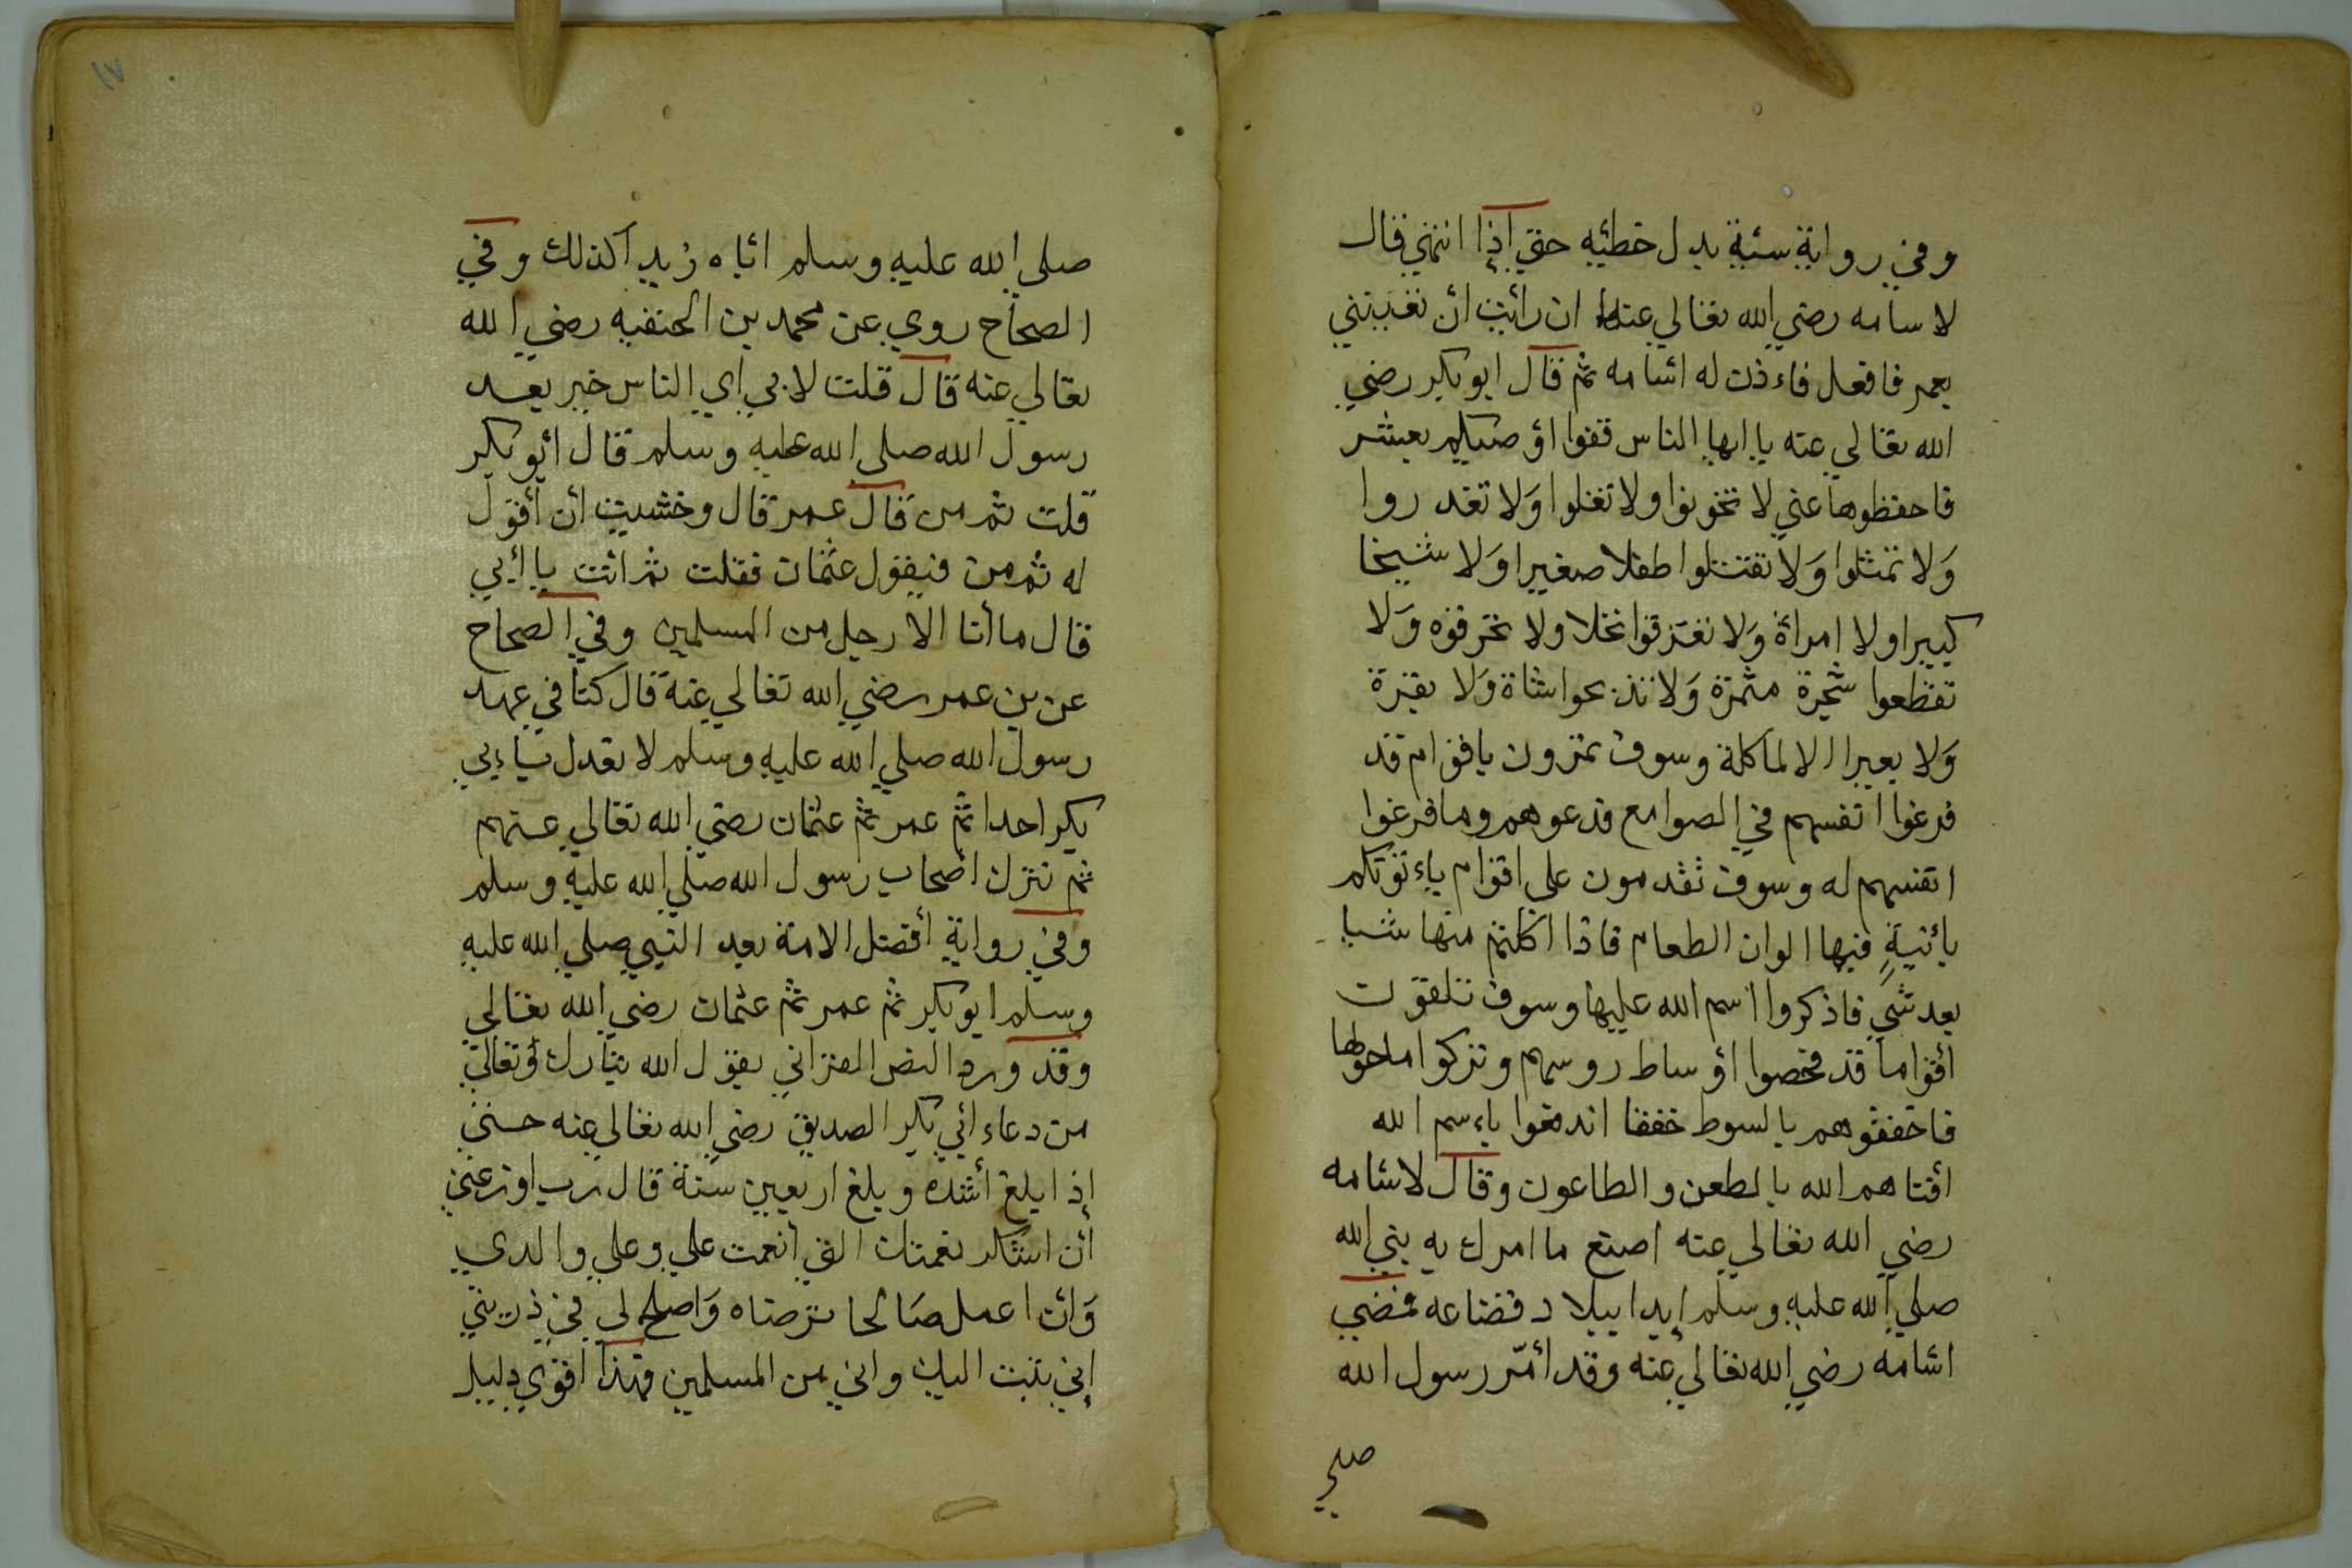 وفي رواية سئية بدل خطئيه حتي اذا انتهي قال
لاسامه رضي الله تعالي عنه ان رائيت ان تعينني
بعمر فافعل فاءذن له اسامه ثم قال ابو بكر رضي
الله تعالي عنه يا ايها الناس قفوا اوصيكم بعشر
فاحفظوها عني لا تخونوا ولا تغلوا ولا تغدروا
ولا تمثلوا ولا تقتلوا طفلا صغيرا ولا شيخا
كبيرا ولا امراة ولا تغرقوا نخلا ولا تحرقوه ولا
تقطعوا شجرة مثمرة ولا تذبحوا شاة ولا بقرة
ولا بعيرا الا لماكلة وسوف تمرون باقوام قد
فرغوا انفسهم في الصوامع فدعوهم وما فرغوا
انفسهم له وسوف تقدمون علي اقوام ياءتوتكم
بأنية فيها الوان الطعام فاذا اكلتم منها شيا
بعد شي فاذكروا اسم الله عليها وسوف تلقون
أقواما قد فحصوا أوساط روسهم وتركوا ماحولها
فاخفقوهم بالسوط خفقا اندفعوا باءسم الله
أفتاهم الله بالطعن والطاعون وقال لاسامه
رضي الله تعالي عنه اصنع ما امرك به نبي الله
صلي الله عليه وسلم إبدا ببلاد قضاعه فمضي
اسامه رضي الله تعالي عنه وقد أمّر رسول الله
صلي
صلي الله عليه وسلم اباه زيد اكذلك وفي
الصحاح روي عن محمد بن الحنفيه رضي الله
تعالي عنه قال قلت لابي اي الناس خير بعد
رسول الله صلي الله عليه وسلم قال ابو بكر
قلت ثم من قال عمر قال وخشيت أن أقول
له ثم من فيقول عثمان فقلت ثم انت يا أبي
قال ما أنا الا رجل من المسلمين وفي الصحاح
عن بن عمر رضي الله تعالي عنه قال كنا في عهد
رسول الله صلي الله عليه وسلم لا نعدل باءبي
بكر احدا ثم عمر ثم عثمان رضي الله تعالي عنهم
ثم نترك اصحاب رسول الله صلي الله عليه وسلم
وفي رواية أفضل الامة بعد النبي صلي الله عليه
وسلم ابو بكر ثم عمر ثم عثمان رضي الله تعالي
وقد ورد النص القراني بقول الله تبارك وتعالي
من دعاء ابي بكر الصديق رضي الله تعالي عنه حتي
إذا بلغ أشده وبلغ اربعين سنة قال رب اوزعني
أن اشكر نعمتك التي أنعمت علي وعلي والدي
وان اعمل صالحا ترضاه واصلح لي في ذريتي
إني تبت اليك واني من المسلمين فهذا اقوي دليل